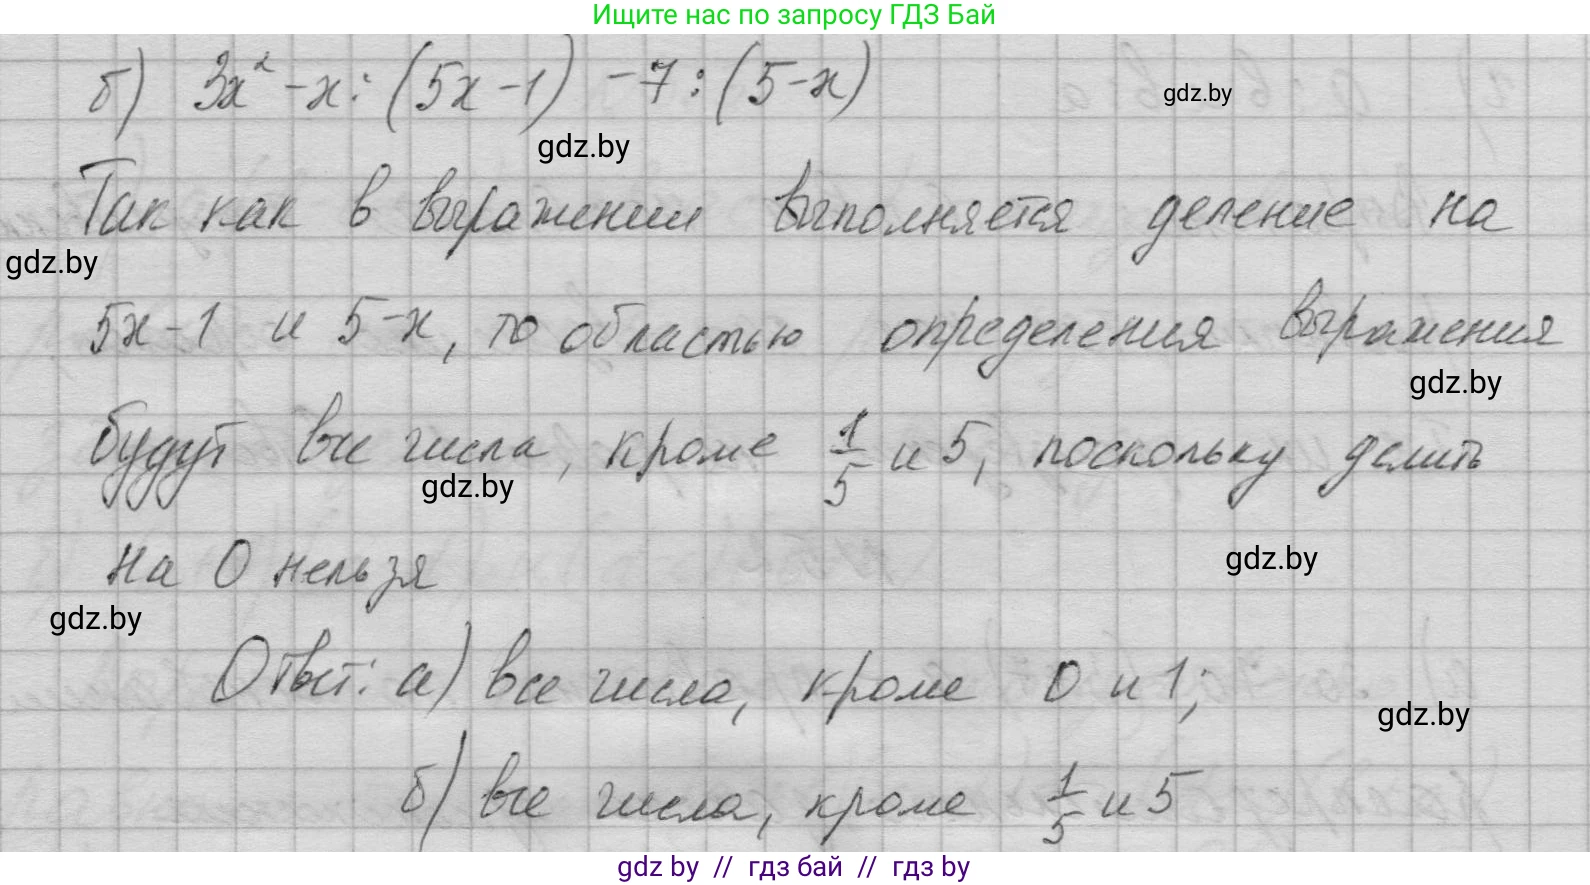 Ищите нас по запросу ГДЗ Бай
б) 3x² - x : (5x - 1) - 7 : (5 - x)
gdz.by
gdz.by
Так как в выражении выполняется деление на
gdz.by
5x - 1 и 5 - x, то областью определения выражения
gdz.by
будут все числа, кроме 1/5 и 5, поскольку делить
gdz.by
на 0 нельзя
gdz.by
gdz.by
Ответ: а) все числа, кроме 0 и 1;
gdz.by
б) все числа, кроме 1/5 и 5
gdz by // гдз бай // гдз by